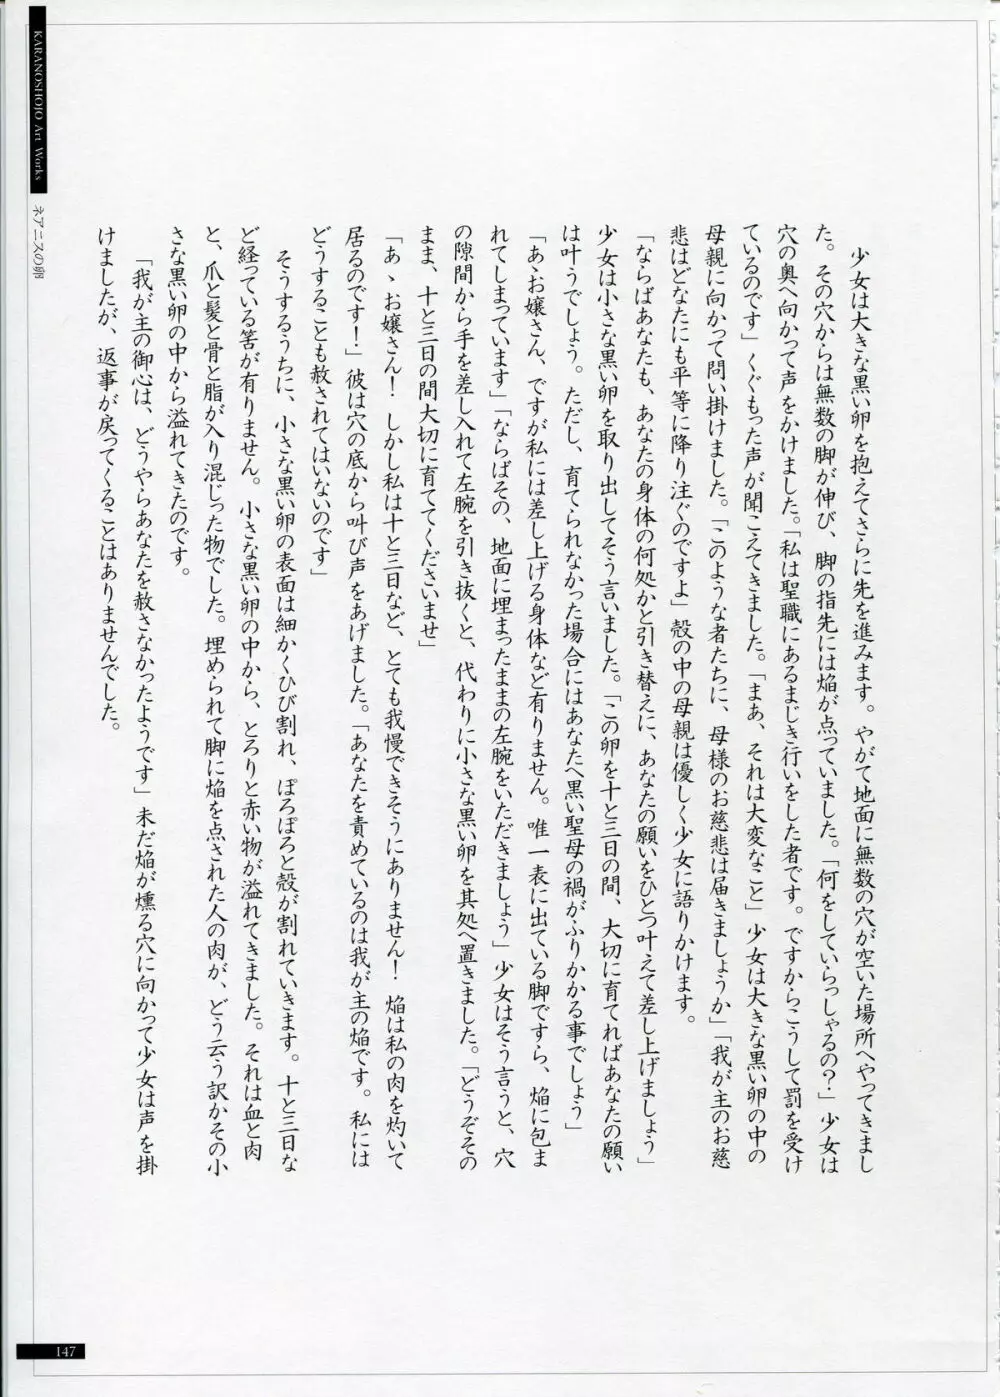 KARANOSHOJO Art Works
ネアニスの卵
　少女は大きな黒い卵を抱えてさらに先を進みます。やがて地面に無数の穴が空いた場所へやってきまし
た。その穴からは無数の脚が伸び、脚の指先には焔が点っていました。「何をしていらっしゃるの？」少女は
穴の奥へ向かって声をかけました。「私は聖職にあるまじき行いをした者です。ですからこうして罰を受け
ているのです」くぐもった声が聞こえてきました。「まあ、それは大変なこと」少女は大きな黒い卵の中の
母親に向かって問い掛けました。「このような者たちに、母様のお慈悲は届きましょうか」「我が主のお慈
悲はどなたにも平等に降り注ぐのですよ」殻の中の母親は優しく少女に語りかけます。
「ならばあなたも、あなたの身体の何処かと引き替えに、あなたの願いをひとつ叶えて差し上げましょう」
少女は小さな黒い卵を取り出してそう言いました。「この卵を十と三日の間、大切に育てればあなたの願い
は叶うでしょう。ただし、育てられなかった場合にはあなたへ黒い聖母の禍がふりかかる事でしょう」
「あゝお嬢さん、ですが私には差し上げる身体など有りません。唯一表に出ている脚ですら、焔に包ま
れてしまっています」「ならばその、地面に埋まったままの左腕をいただきましょう」少女はそう言うと、穴
の隙間から手を差し入れて左腕を引き抜くと、代わりに小さな黒い卵を其処へ置きました。「どうぞその
まま、十と三日の間大切に育ててくださいませ」
「あゝお嬢さん！　しかし私は十と三日など、とても我慢できそうにありません！　焔は私の肉を灼いて
居るのです！」彼は穴の底から叫び声をあげました。「あなたを責めているのは我が主の焔です。私には
どうすることも赦されてはいないのです」
　そうするうちに、小さな黒い卵の表面は細かくひび割れ、ぽろぽろと殻が割れていきます。十と三日な
ど経っている筈が有りません。小さな黒い卵の中から、とろりと赤い物が溢れてきました。それは血と肉
と、爪と髪と骨と脂が入り混じった物でした。埋められて脚に焔を点された人の肉が、どう云う訳かその小
さな黒い卵の中から溢れてきたのです。
「我が主の御心は、どうやらあなたを赦さなかったようです」未だ焔が燻る穴に向かって少女は声を掛
けましたが、返事が戻ってくることはありませんでした。
147